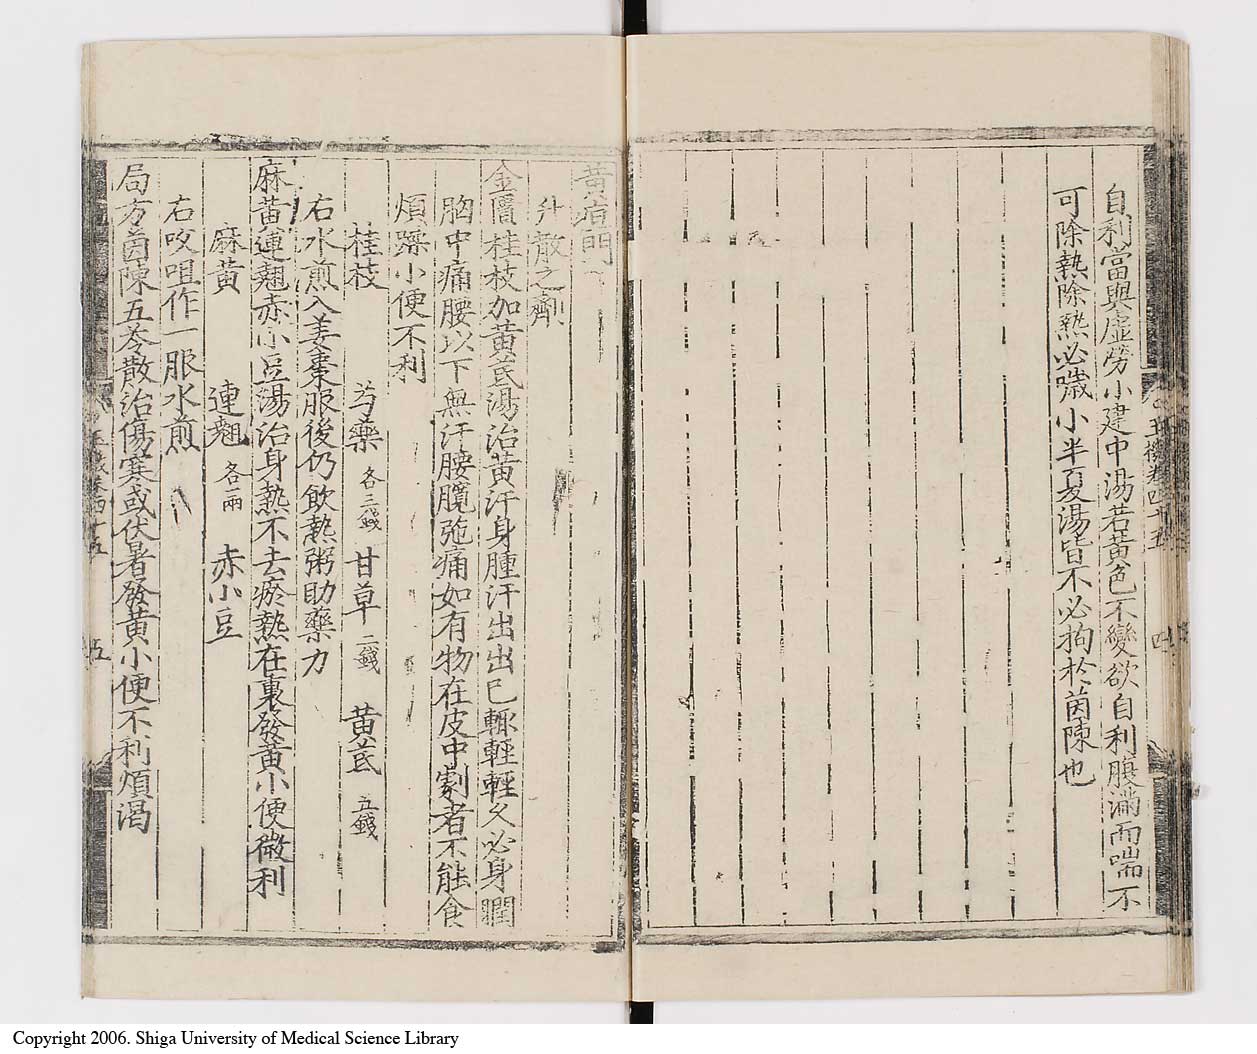 自利當與虛勞小建中湯若黃色不變欲自利腹滿而喘不
可除熱除熱必噦小半夏湯皆不必拘於茵陳也
玉機卷四十五
四
黃疸門
升散之劑
金匱桂枝加黃芪湯治黃汗身腫汗出出已輒輕輕久必身瞤
胸中痛腰以下無汗腰髖弛痛如有物在皮中劇者不能食
煩躁小便不利
桂枝 芍藥各三錢 甘草二錢 黃芪五錢
右水煎入姜棗服後仍飲熱粥助藥力
麻黃連翹赤小豆湯治身熱不去瘀熱在裏發黃小便微利
麻黃 連翹各一兩 赤小豆
右㕮咀作一服水煎
局方茵陳五苓散治傷寒或伏暑發黃小便不利煩渴
玉機卷四十五
五
Copyright 2006. Shiga University of Medical Science Library